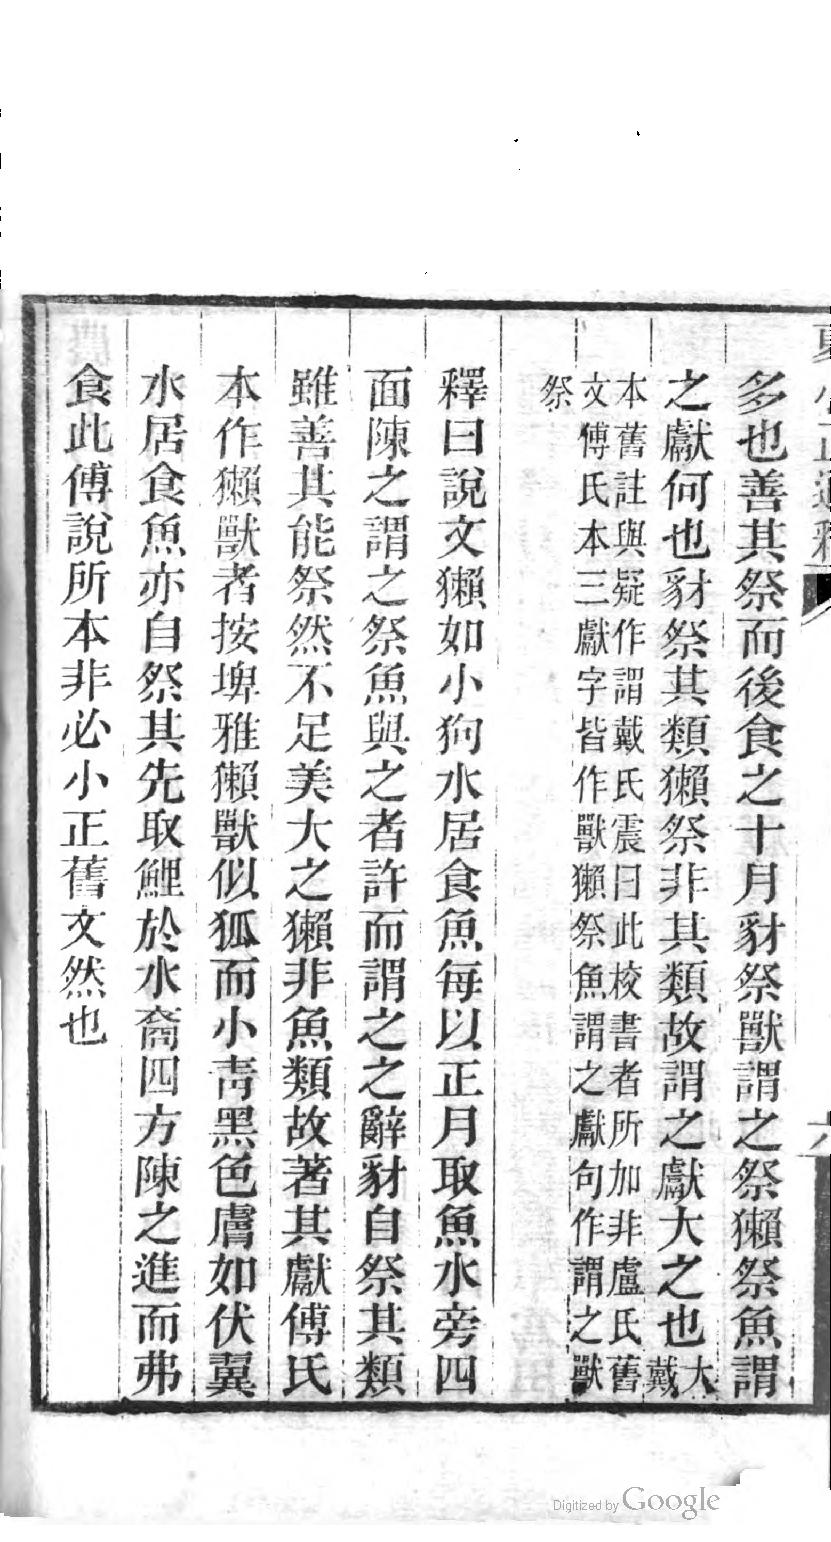 夏小正通釋
六
多也善其祭而後食之十月豺祭獸謂之祭獺祭魚謂
之獻何也豺祭其類獺祭非其類故謂之獻大之也大戴
本舊註與疑作謂戴氏震曰此校書者所加非盧氏舊
文傅氏本三獻字皆作獸獺祭魚謂之獻句作謂之獸
祭
釋曰說文獺如小狗水居食魚每以正月取魚水旁四
面陳之謂之祭魚與之者許而謂之之辭豺自祭其類
雖善其能祭然不足美大之獺非魚類故著其獻傅氏
本作獺獸者按埤雅獺獸似狐而小靑黑色膚如伏翼
水居食魚亦自祭其先取鯉於水裔四方陳之進而弗
食此傅說所本非必小正舊文然也
Digitized by Google